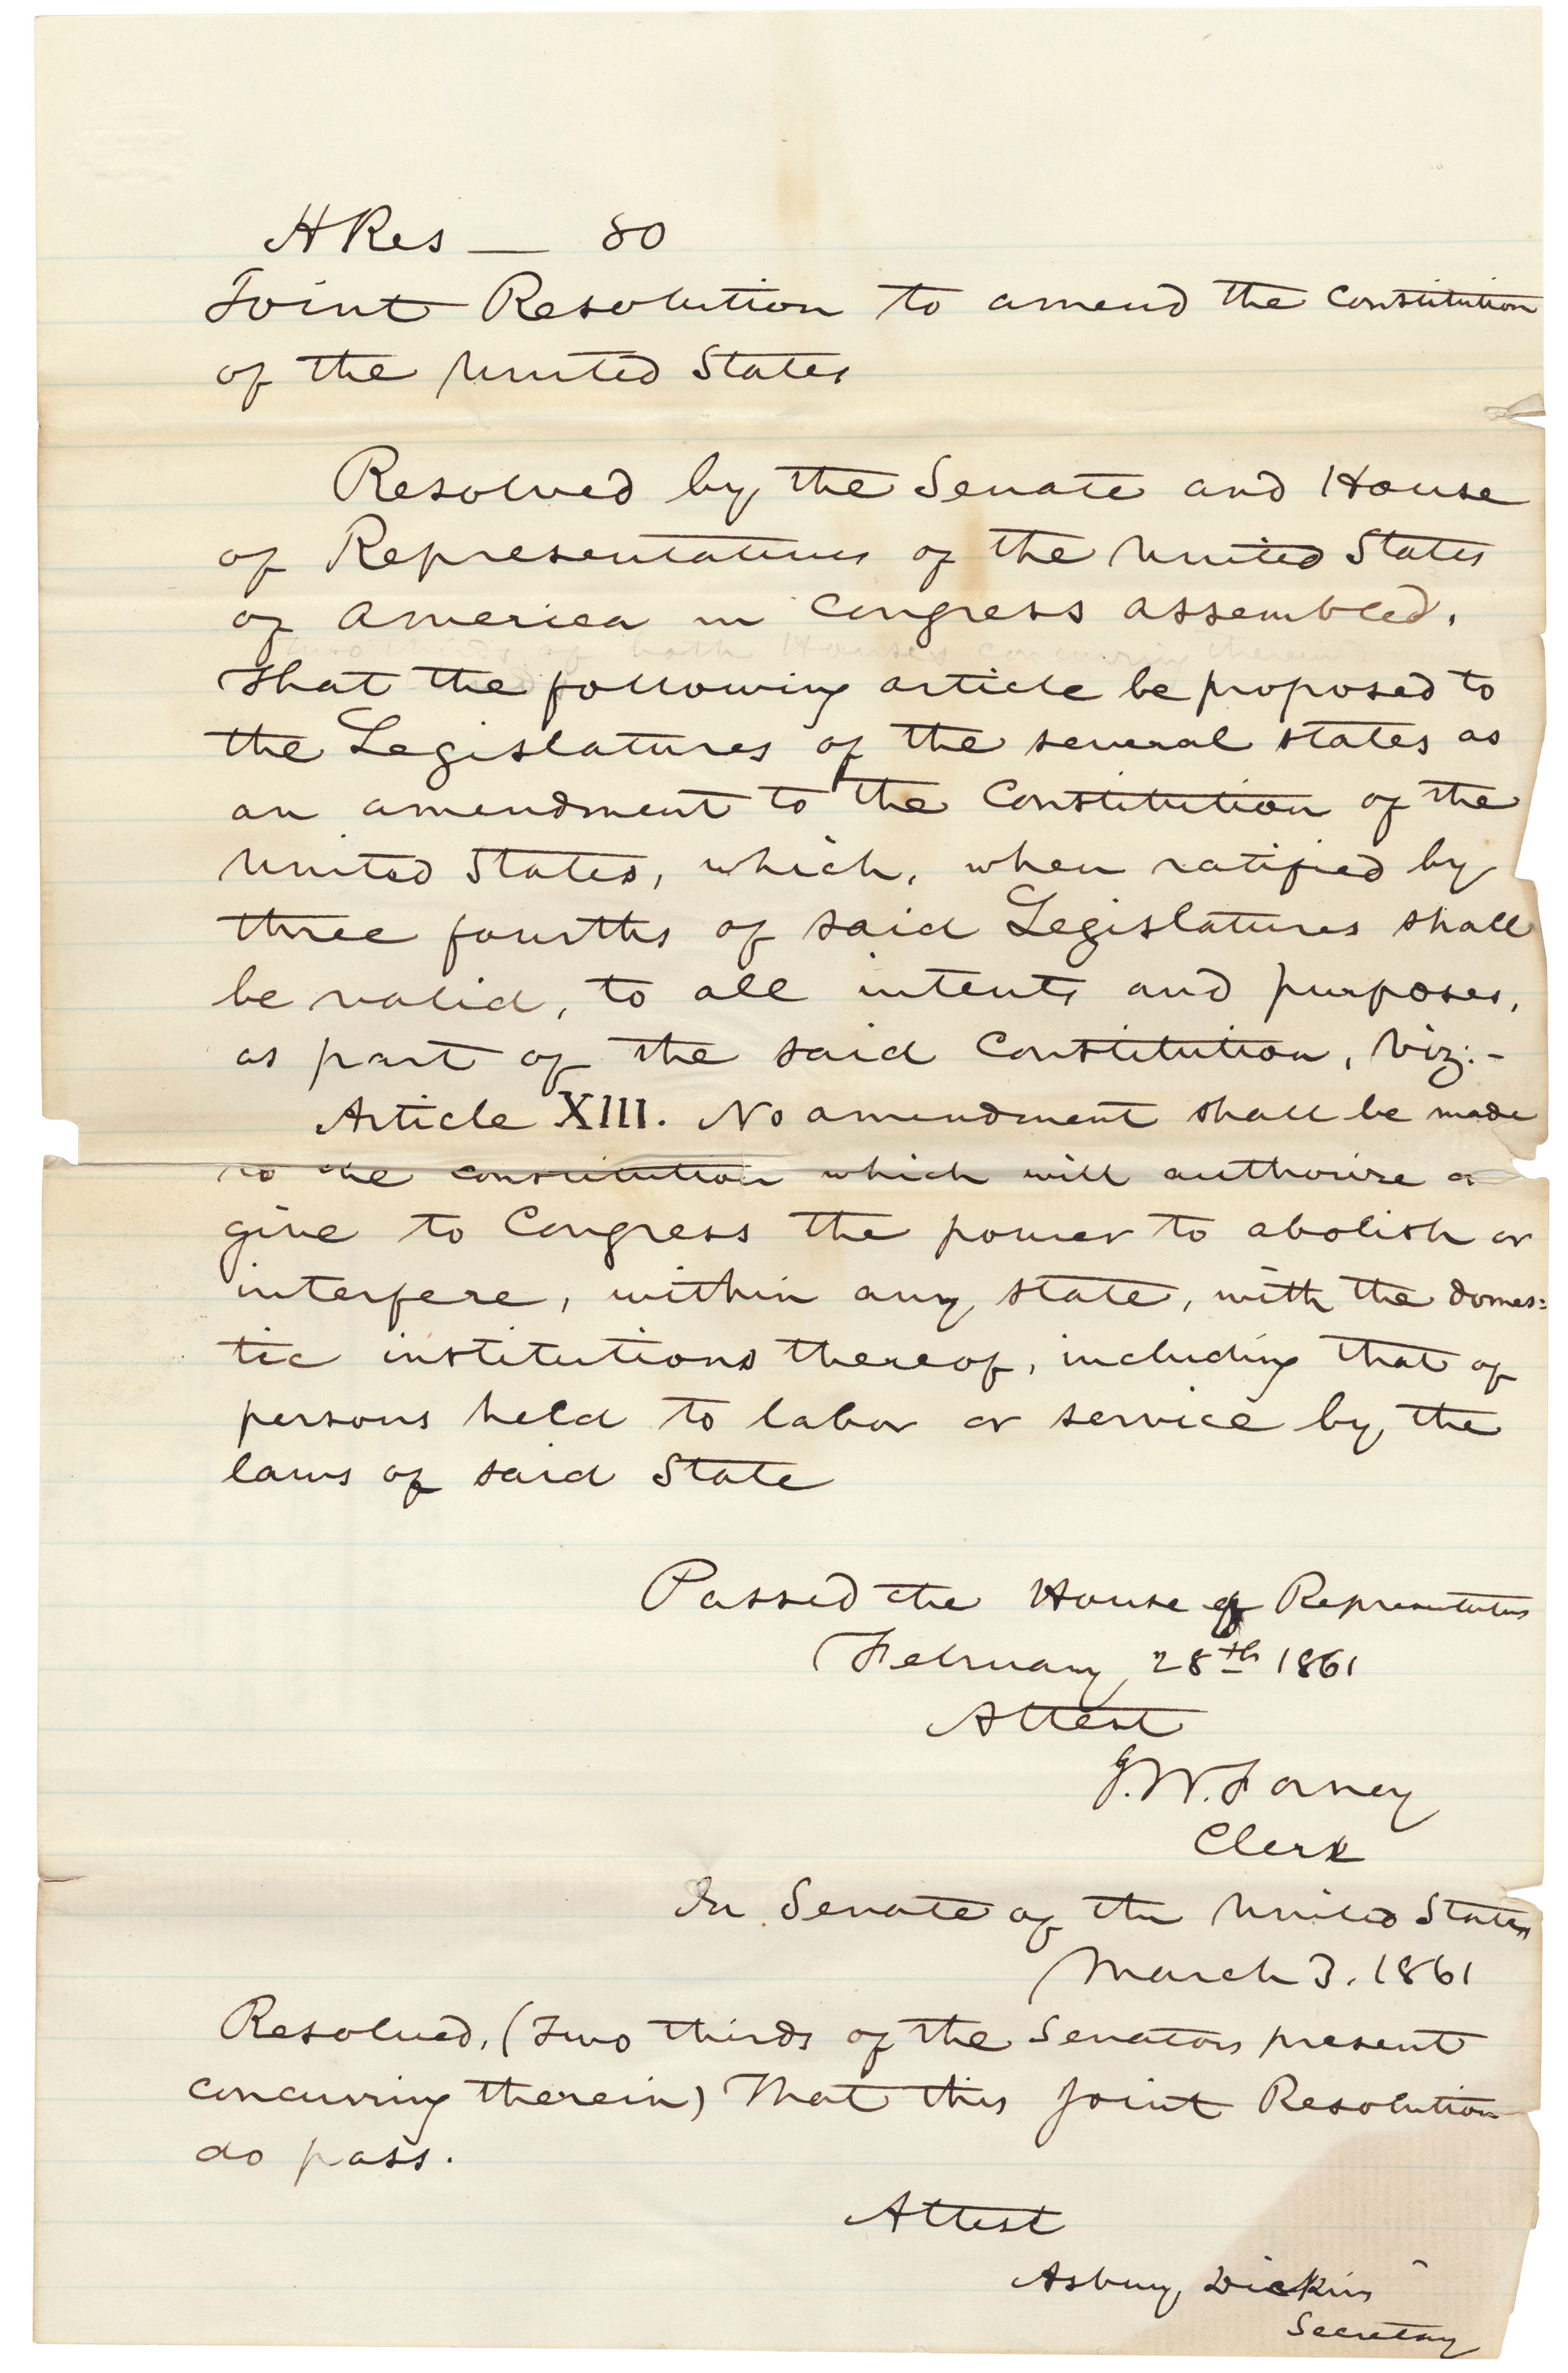 H Res — 80
Joint Resolution to amend the Constitution
of the United States
Resolved by the Senate and House
of Representatives of the United States
of America in Congress assembled,
two thirds of both Houses concurring therein
That the following article be proposed to
the Legislatures of the several states as
an amendment to the Constitution of the
United States, which, when ratified by
three fourths of said Legislatures shall
be valid, to all intents and purposes,
as part of the said Constitution, viz:-
Article XIII. No amendment shall be made
to the constitution which will authorize or
give to Congress the power to abolish or
interfere, within any state, with the domes=
tic institutions thereof, including that of
persons held to labor or service by the
laws of said State
Passed the House of Representatives
February 28th 1861
Attest
J. W. Forney
Clerk
In Senate of the United States
March 3. 1861
Resolved, (two thirds of the Senators present
concurring therein) That this Joint Resolution
do pass.
Attest
Asbury Dickins
Secretary